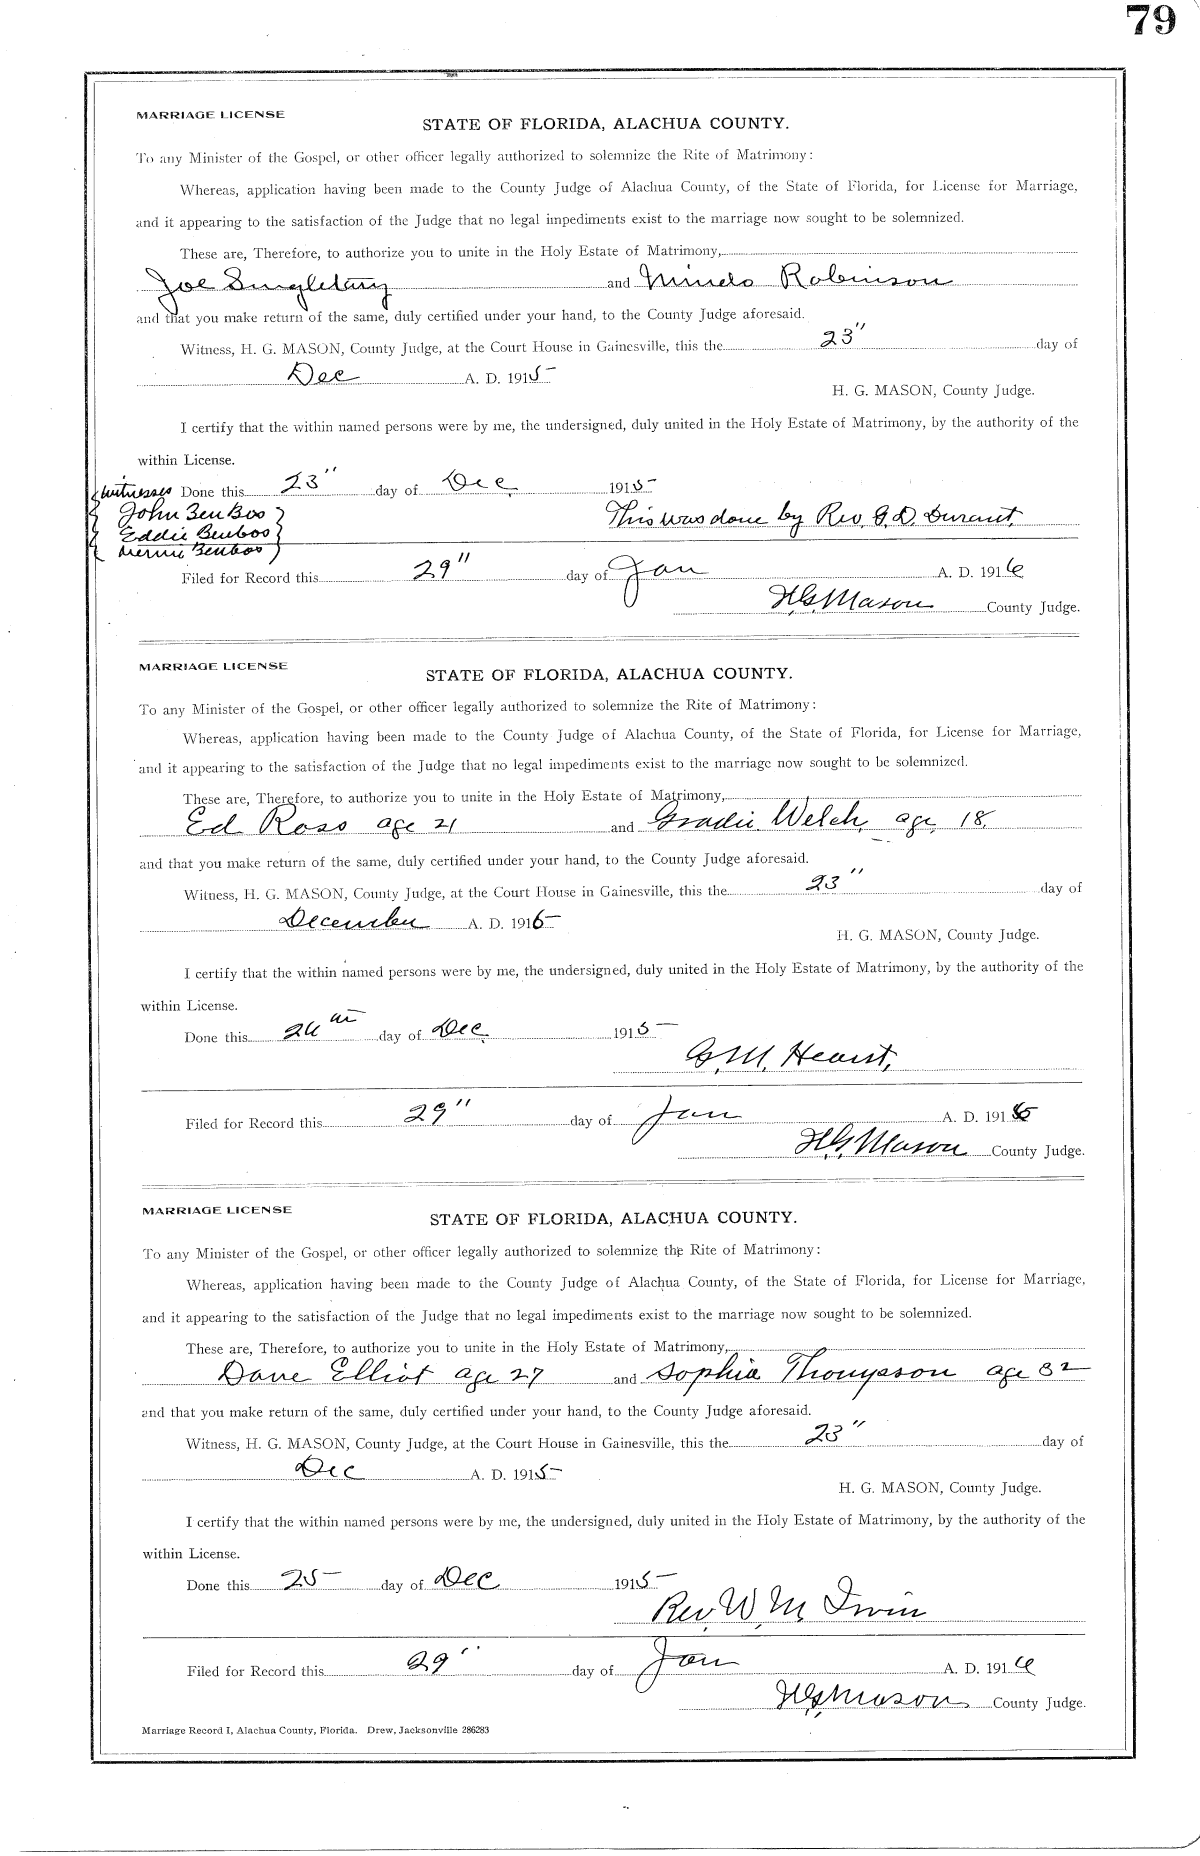 79
MARRIAGE LICENSE
STATE OF FLORIDA, ALACHUA COUNTY.
To any Minister of the Gospel, or other officer legally authorized to solemnize the Rite of Matrimony:
Whereas, application having been made to the County Judge of Alachua County, of the State of Florida, for License for Marriage,
and it appearing to the satisfaction of the Judge that no legal impediments exist to the marriage now sought to be solemnized.
These are, Therefore, to authorize you to unite in the Holy Estate of Matrimony,
Joe Singletary and Robinson
and that you make return of the same, duly certified under your hand, to the County Judge aforesaid.
Witness, H. G. MASON, County Judge, at the Court House in Gainesville, this the 23" day of
Dec A. D. 1915
H. G. MASON, County Judge.
I certify that the within named persons were by me, the undersigned, duly united in the Holy Estate of Matrimony, by the authority of the
within License.
Witnesses Done this 23" day of Dec, 1915
John BenBoo
Eddie Benboo
Benboo
This was done by Rev G. D. Durant,
Filed for Record this 29" day of Jan A. D. 1916
H. G. Mason County Judge.
MARRIAGE LICENSE
STATE OF FLORIDA, ALACHUA COUNTY.
To any Minister of the Gospel, or other officer legally authorized to solemnize the Rite of Matrimony:
Whereas, application having been made to the County Judge of Alachua County, of the State of Florida, for License for Marriage,
and it appearing to the satisfaction of the Judge that no legal impediments exist to the marriage now sought to be solemnized.
These are, Therefore, to authorize you to unite in the Holy Estate of Matrimony,
Ed Ross age 21 and Gradie Welch, age, 18,
and that you make return of the same, duly certified under your hand, to the County Judge aforesaid.
Witness, H. G. MASON, County Judge, at the Court House in Gainesville, this the 23" day of
December A. D. 1915
H. G. MASON, County Judge.
I certify that the within named persons were by me, the undersigned, duly united in the Holy Estate of Matrimony, by the authority of the
within License.
Done this day of Dec, 1915
G. M. Hearst,
Filed for Record this 29" day of Jan A. D. 191
H. G. Mason County Judge.
MARRIAGE LICENSE
STATE OF FLORIDA, ALACHUA COUNTY.
To any Minister of the Gospel, or other officer legally authorized to solemnize the Rite of Matrimony:
Whereas, application having been made to the County Judge of Alachua County, of the State of Florida, for License for Marriage,
and it appearing to the satisfaction of the Judge that no legal impediments exist to the marriage now sought to be solemnized.
These are, Therefore, to authorize you to unite in the Holy Estate of Matrimony,
Dave Elliot age 27 and Sophia Thompson age 32
and that you make return of the same, duly certified under your hand, to the County Judge aforesaid.
Witness, H. G. MASON, County Judge, at the Court House in Gainesville, this the 23" day of
Dec A. D. 1915
H. G. MASON, County Judge.
I certify that the within named persons were by me, the undersigned, duly united in the Holy Estate of Matrimony, by the authority of the
within License.
Done this 25 day of Dec 1915
Rev. W. M. Irvin
Filed for Record this 29" day of Jan A. D. 1916
H. G. Mason County Judge.
Marriage Record I, Alachua County, Florida. Drew, Jacksonville 286283